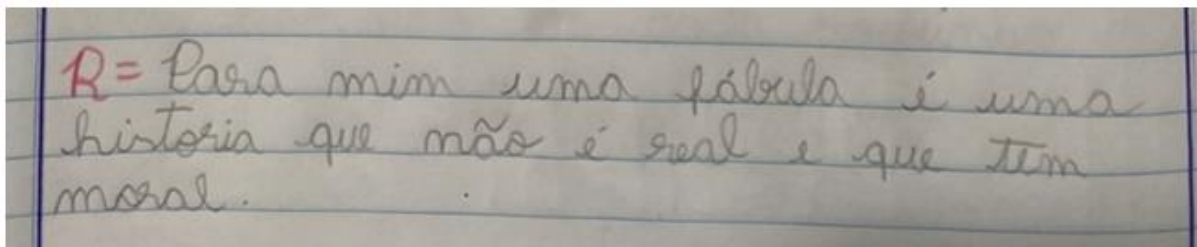 R= Para mim uma fábula é uma
historia que não é real e que tem
moral.